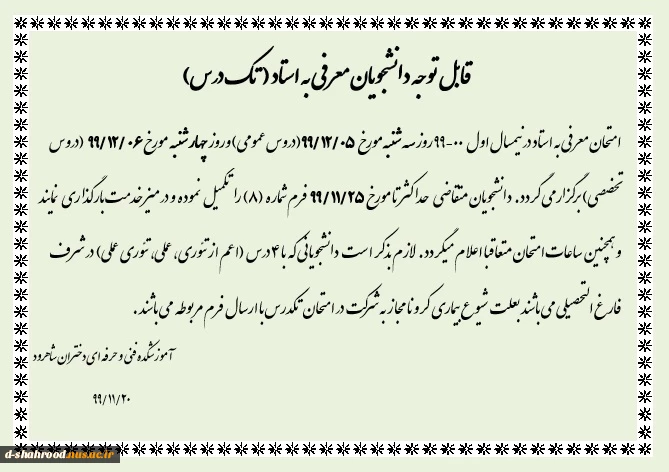 قابل توجه دانشجویان معرفی به استاد (تک درس)
امتحان معرفی به استاد در نیمسال اول ۰۰-۹۹ روز سه شنبه مورخ ۹۹/۱۲/۰۵ (دروس عمومی) و روز چهارشنبه مورخ ۹۹/۱۲/۰۶ (دروس
تخصصی) برگزار می گردد. دانشجویان متقاضی حداکثر تا مورخ ۹۹/۱۱/۲۵ فرم شماره (۸) را تکمیل نموده و در میز خدمت بارگذاری نمایند
و همچنین ساعات امتحان متعاقبا اعلام میگردد. لازم بذکر است دانشجویانی که با ۴ درس (اعم از تئوری، عملی، تئوری عملی) در شرف
فارغ التحصیلی می باشند بعلت شیوع بیماری کرونا مجاز به شرکت در امتحان تکدرس با ارسال فرم مربوطه می باشند.
آموزشکده فنی و حرفه ای دختران شاهرود
۹۹/۱۱/۲۰
d-shahrood.nus.ac.ir